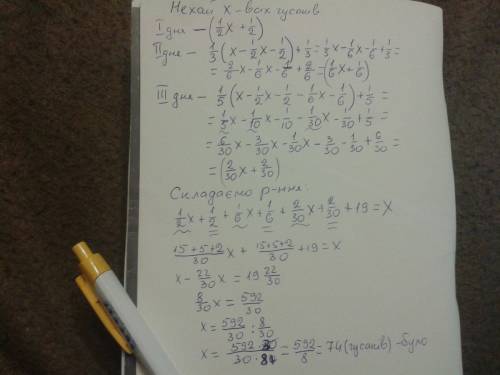 Нехай x - всіх гусаків
I дня - (1/2x + 1/2)
II дня - 1/3(x - 1/2x - 1/2) + 1/3 = 1/3x - 1/6x - 1/6 + 1/3 =
= 2/6x - 1/6x - 1/6 + 2/6 = (1/6x + 1/6)
III дня - 1/5(x - 1/2x - 1/2 - 1/6x - 1/6) + 1/5 =
= 1/5x - 1/10x - 1/10 - 1/30x - 1/30 + 1/5 =
= 6/30x - 3/30x - 1/30x - 3/30 - 1/30 + 6/30 =
= (2/30x + 2/30)
Складаємо р-ння:
1/2x + 1/2 + 1/6x + 1/6 + 2/30x + 2/30 + 19 = x
15+5+2/30 x + 15+5+2/30 + 19 = x
x - 22/30x = 19 22/30
8/30x = 592/30
x = 592/30 : 8/30
x = 592·30/30·8 = 592/8 = 74 (гусаків) - було